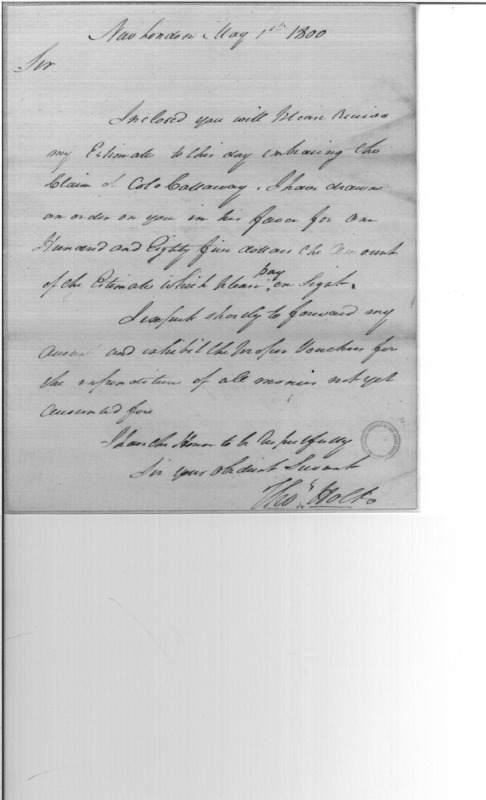 New London May 1st 1800
Sir
Inclosed you will Please Receive
my Estimate to this day embracing the
Claim of Colo Callaway, I have drawn
an order on you in his favor for One
Hundred and Eighty five dollars the Amount
of the Estimate which Please pay on Sight.
I expect shortly to forward my
account and exhibit the Proper Vouchers for
the expenditure of all monies not yet
accounted for
I have the Honor to be Respectfully
Sir your obedient Servant
Thos Holt